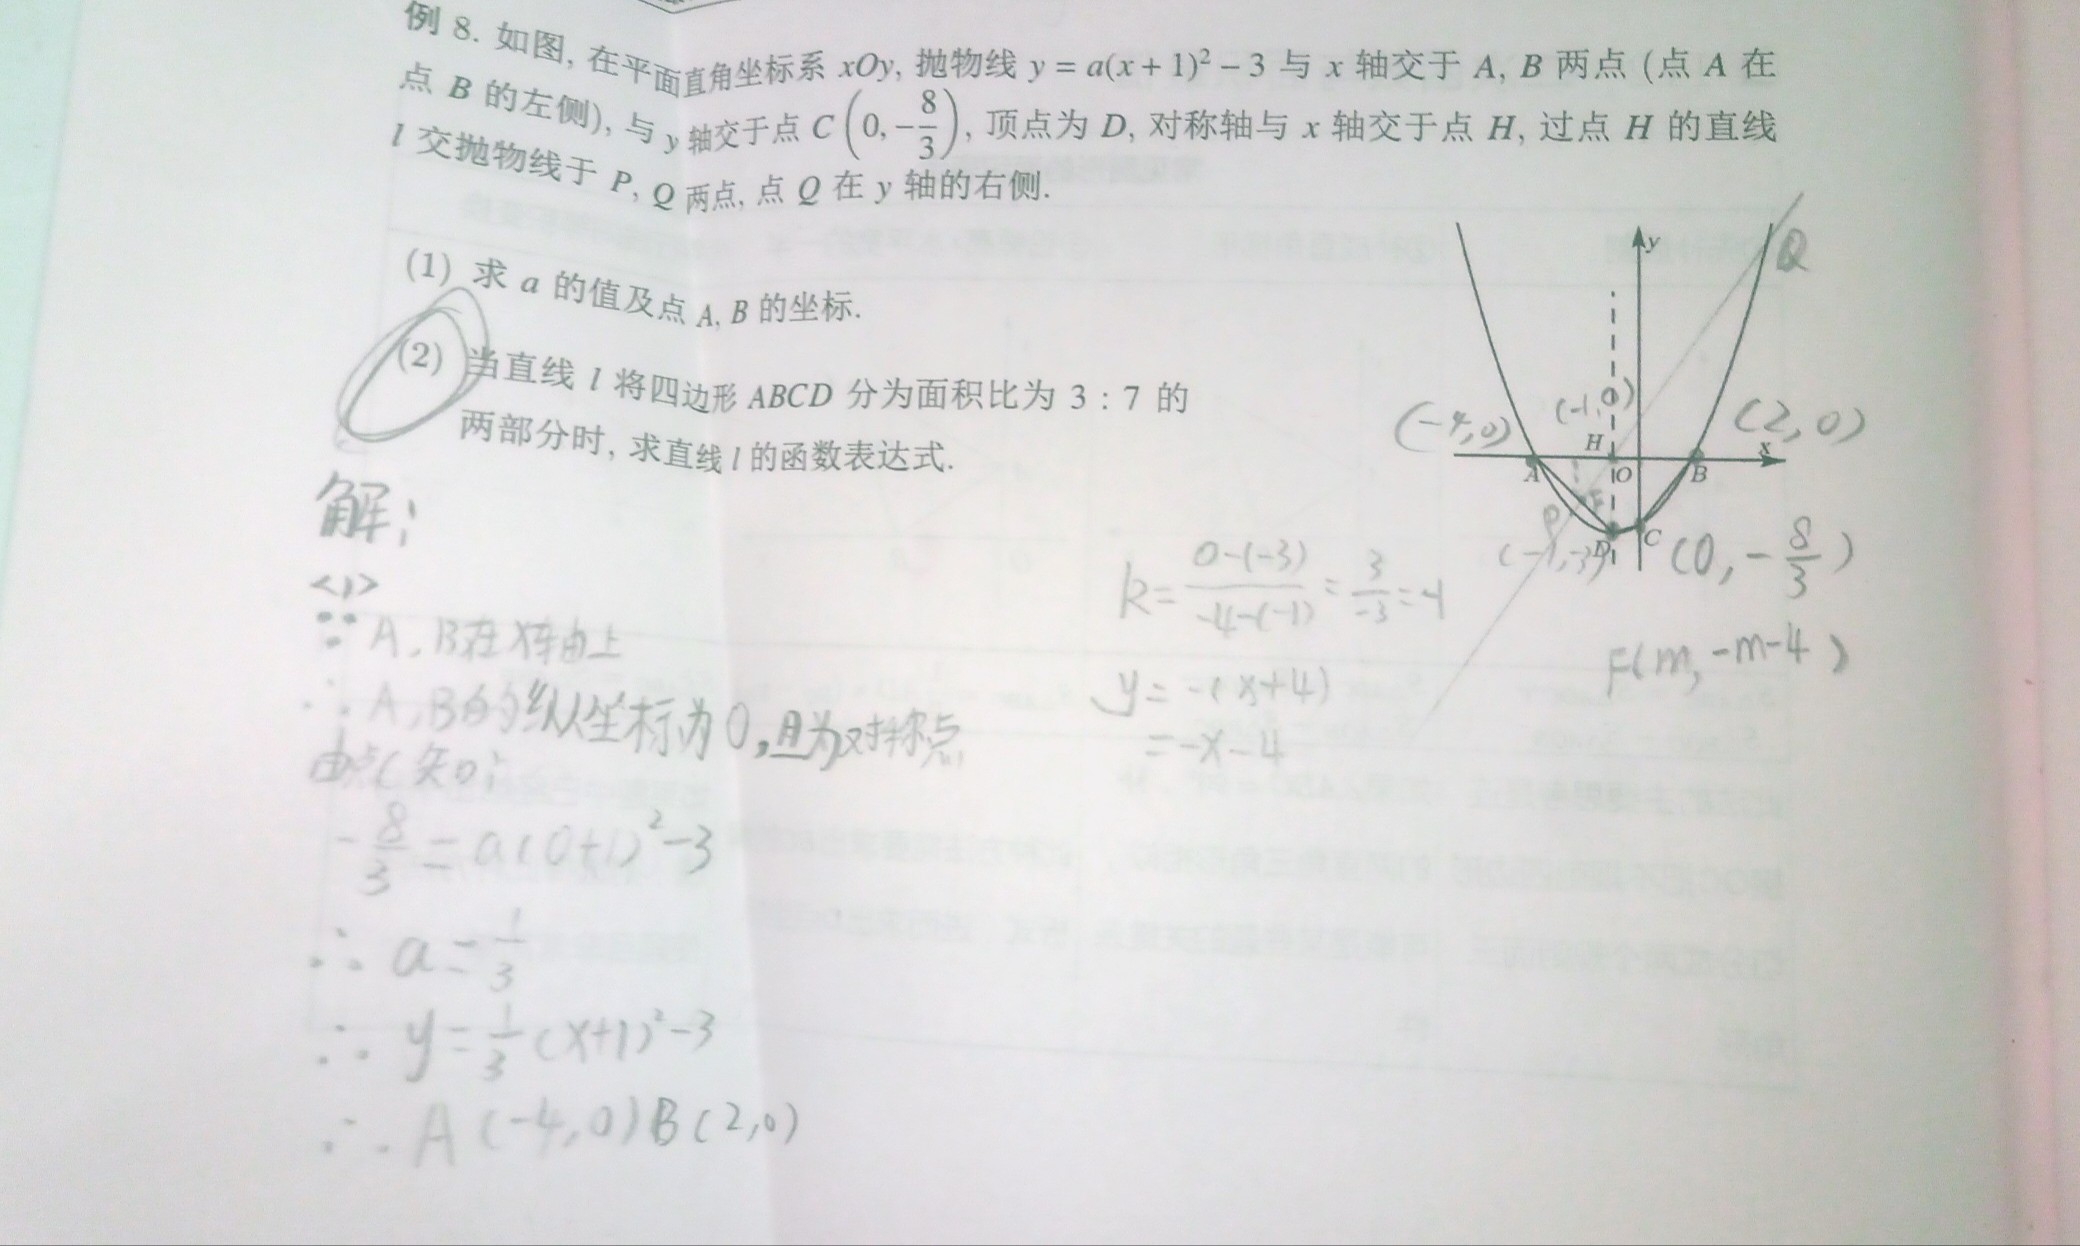 例 8. 如图, 在平面直角坐标系 xOy, 抛物线 y = a(x + 1)² − 3 与 x 轴交于 A, B 两点 (点 A 在
点 B 的左侧), 与 y 轴交于点 C(0, −8/3), 顶点为 D, 对称轴与 x 轴交于点 H, 过点 H 的直线
l 交抛物线于 P, Q 两点, 点 Q 在 y 轴的右侧.
(1) 求 a 的值及点 A, B 的坐标.
(2) 当直线 l 将四边形 ABCD 分为面积比为 3 : 7 的
两部分时, 求直线 l 的函数表达式.
y
Q
(-4,0)
(-1,0)
(2,0)
H
x
A
O
B
F
P
(-1,-3)
D
C
(0, -8/3)
解:
<1>
∵ A,B在x轴上
∴ A,B的纵坐标为0,且为对称点
由点C知:
-8/3 = a(0+1)²-3
∴ a = 1/3
∴ y = 1/3(x+1)²-3
∴ A(-4,0) B(2,0)
k = 0-(-3)/-4-(-1) = 3/-3 = -1
y = -(x+4)
= -x-4
F(m, -m-4)